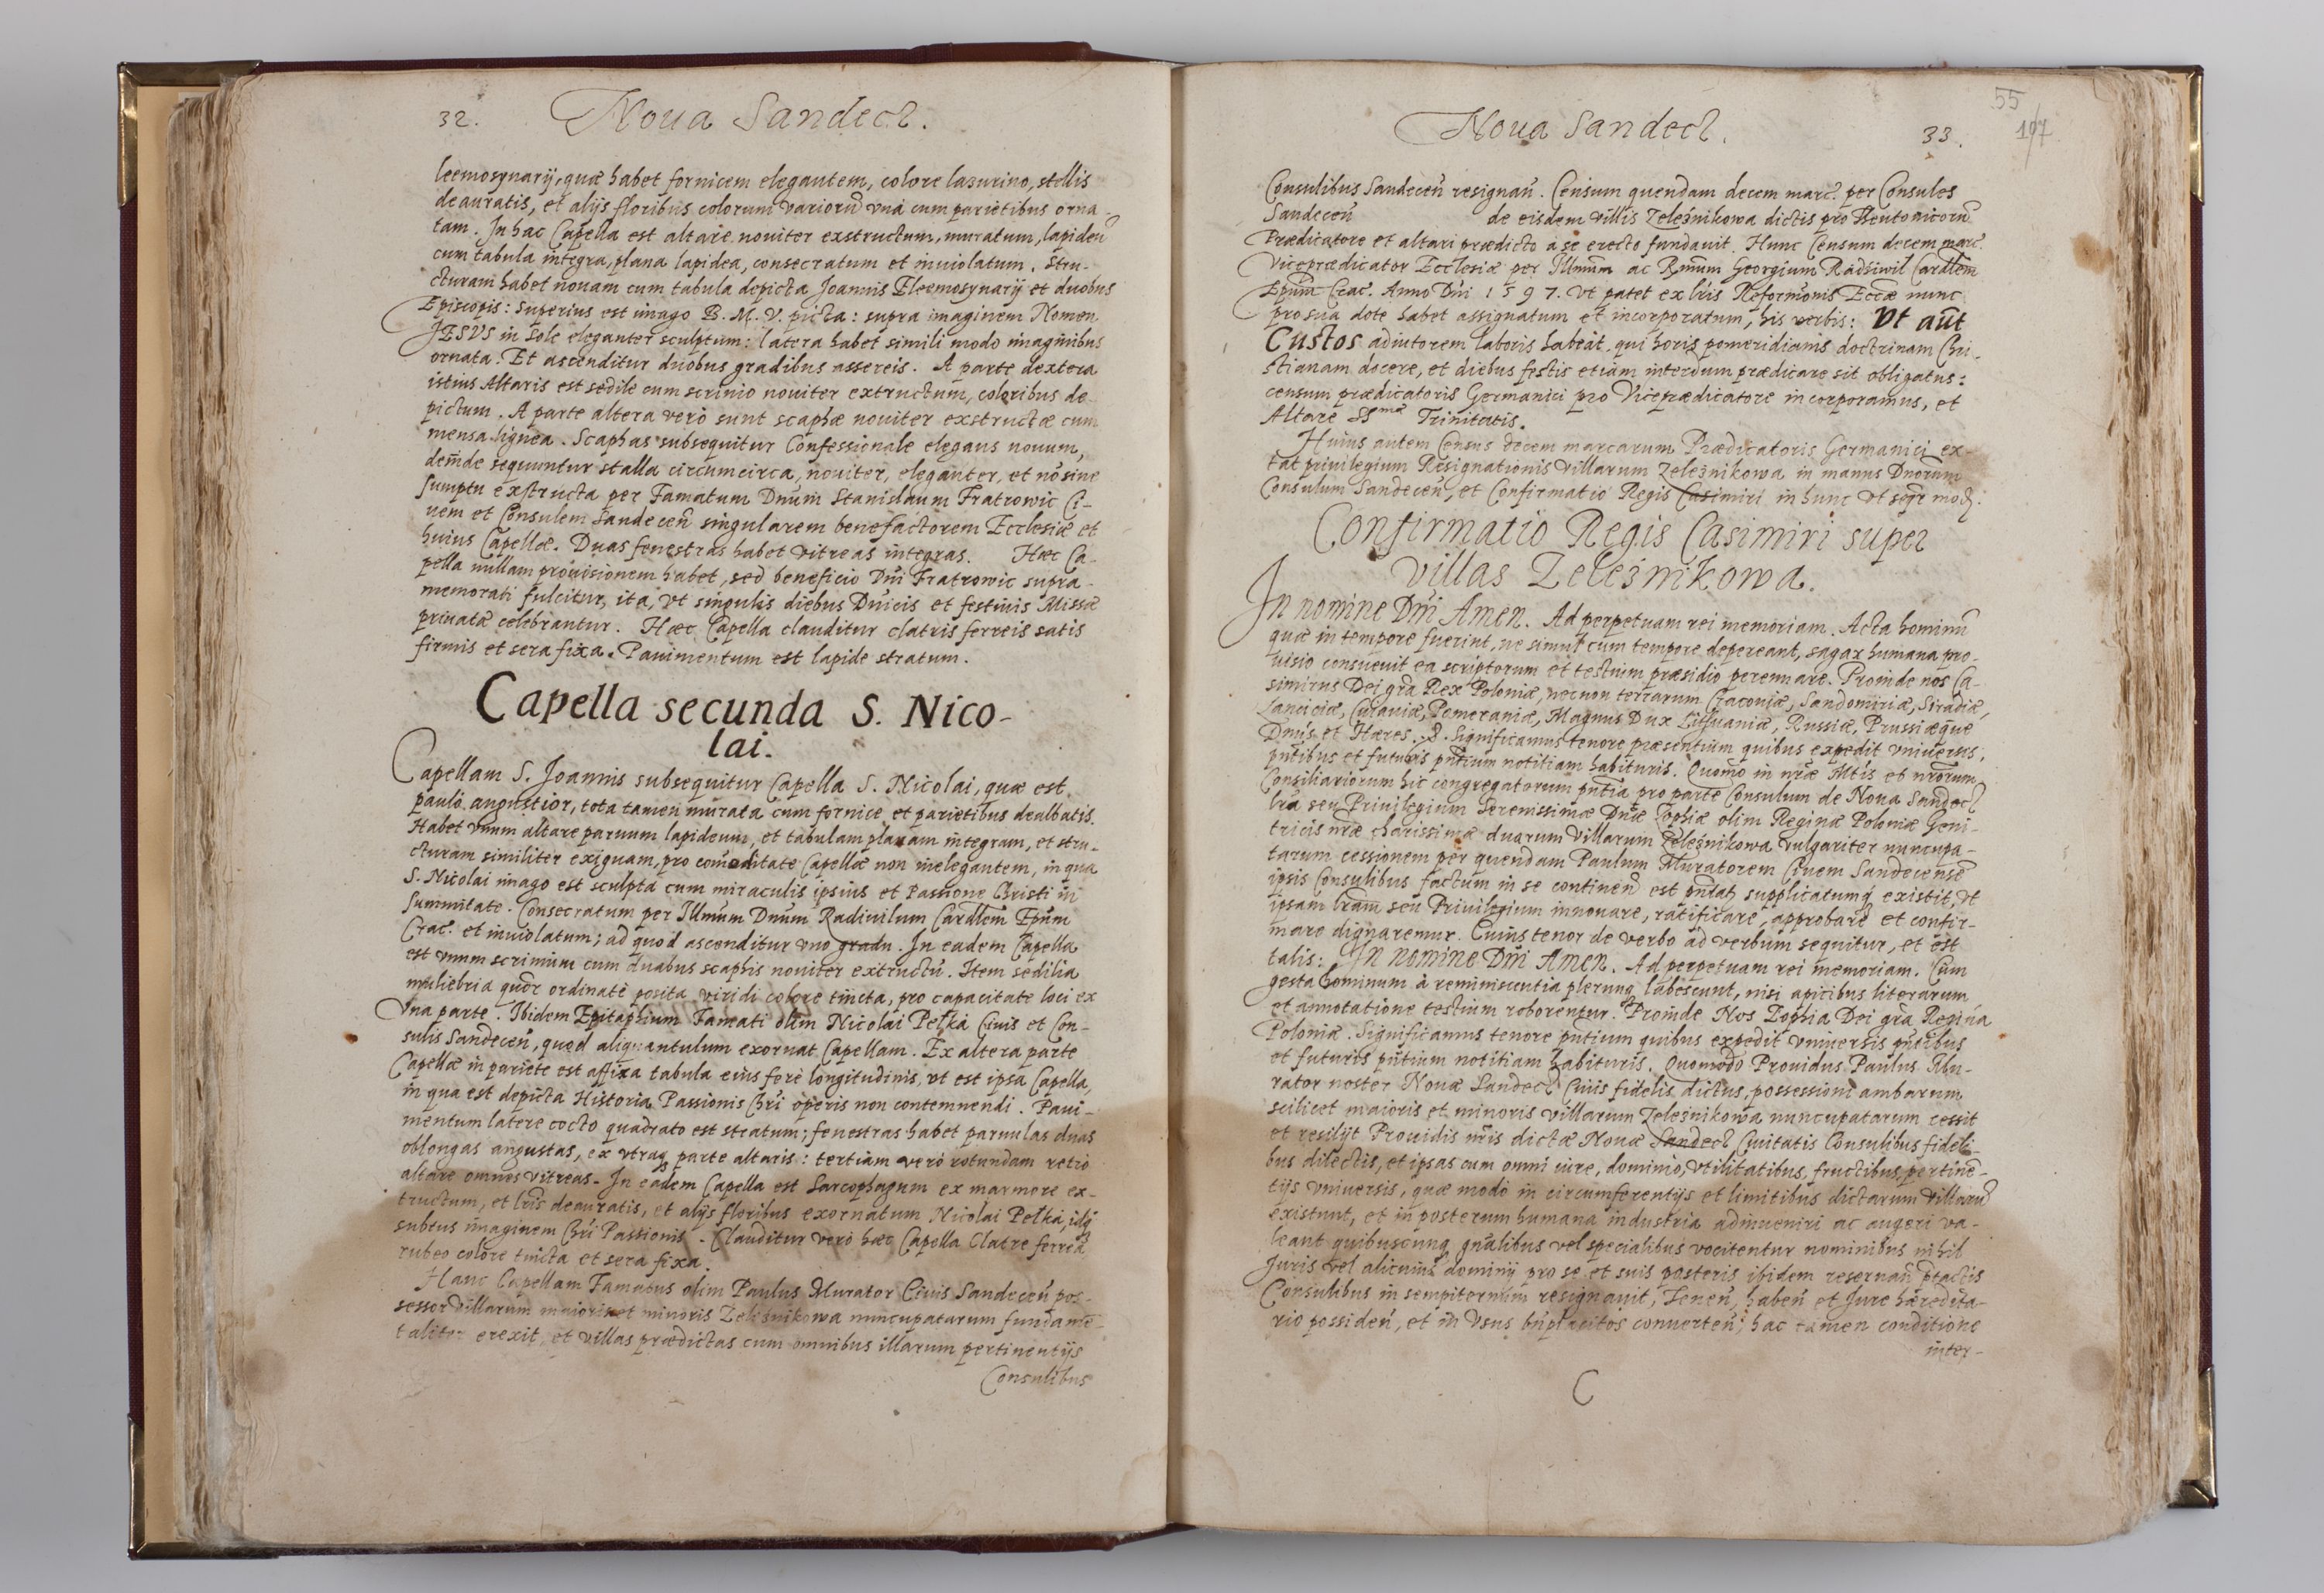 32. Noua Sandecz.
leemosynarij, quæ habet fornicem elegantem, colore lazurino, stellis
deauratis, et alijs floribus colorum variorũ vna cum parietibus orna
tam. In hac Capella est altare nouiter exstructum, muratum, lapideũ
cum tabula integra, plana lapidea, consecratum et inuiolatum. Stru-
cturam habet nouam cum tabula depicta Joannis Eleemosynarij et duobus
Episcopis: Superius est imago B. M. V. picta: supra imaginem Nomen
JESVS in Sole eleganter sculptum: latera habet simili modo imaginibus
ornata. Et ascenditur duobus gradibus assereis. A parte dextera
istius Altaris est sedile cum scrinio nouiter extructum, coloribus de
pictum. A parte altera verò sunt scaphæ nouiter exstructæ cum
mensa lignea. Scaphas subsequitur Confessionale elegans nouum,
deinde sequuntur stalla circumcirca, nouiter, eleganter, et nõ sine
sumptu exstructa per Famatum Dnum Stanislaum Fratrowic Ci-
uem et Consulem Sandeceñ singularem benefactorem Ecclesiæ et
huius Capellæ. Duas fenestras habet vitreas integras. Hæc Ca-
pella nullam prouisionem habet, sed beneficio Dñi Fratrowic supra-
memorati fulcitur, ita, vt singulis diebus Dnicis et festiuis Missæ
priuatæ celebrantur. Hæc Capella clauditur clatris ferreis satis
firmis et sera fixa. Pauimentum est lapide stratum.
Capella secunda S. Nico-
lai.
Capellam S. Joannis subsequitur Capella S. Nicolai, quæ est
paulò angustior, tota tamen murata cum fornice et parietibus dealbatis.
Habet vnum altare paruum lapideum, et tabulam planam integram, et stru-
cturam similiter exiguam, pro comoditate Capellæ non inelegantem, in qua
S. Nicolai imago est sculpta cum miraculis ipsius et Passione Christi in
summitate. Consecratum per Illmum Dnum Radiuilum Cardlem Epum
Crac. et inuiolatum; ad quod ascenditur vno gradu. In eadem Capella
est vnum scrinium cum duabus scaphis nouiter extructũ. Item sedilia
muliebria ordinatè posita viridi colore tincta, pro capacitate loci ex
Vna parte. Ibidem Epitaphium Famati olim Nicolai Pełka Ciuis et Con-
sulis Sandeceñ, quod aliquantulum exornat Capellam. Ex altera parte
Capellæ in pariete est affixa tabula eius ferè longitudinis, vt est ipsa Capella,
in qua est depicta Historia Passionis Chri operis non contemnendi. Paui-
mentum latere cocto quadrato est stratum; fenestras habet paruulas duas
oblongas angustas, ex vtraq parte altaris: tertiam verò rotundam retrò
altare omnes vitreas. In eadem Capella est Sarcophagum ex marmore ex-
tructum, et lris deauratis, et alijs floribus exornatum Nicolai Pełka, idq
subtus imaginem Chri Passionis. Clauditur verò hæc Capella Clatre ferreâ
rubeo colore tincta et sera fixa.
Hanc Capellam Famatus olim Paulus Murator Ciuis Sandeceñ pos-
sessor villarum maioris et minoris Zeleśnikowa nuncupatarum fundame-
taliter erexit, et villas prædictas cum omnibus illarum pertinentijs
Consulibus
Noua Sandecz. 33.
55
107
Consulibus Sandeceñ resignauñ. Censum quendam decem marc. per Consules
Sandeceñ de eisdem villis Zeleśnikowa dictis pro Theutonicorũ
Prædicatore et altari prædicto a se erecto fundauit. Hunc Censum decem marc.
Viceprædicator Ecclesiæ per Illmum ac Rmum Georgium Radziwil Cardlem
Epum Crac. Anno Dni 1597. vt patet ex lris Reformonis Eccæ nunc
pro sua dote habet assignatum et incorporatum, his verbis: Vt aut
Custos adiutorem laboris habeat, qui horis pomeridianis doctrinam Chri-
stianam docere, et diebus festis etiam interdum prædicare sit obligatus:
censum prædicatoris Germanici pro Viceprædicatore incorporamus, et
Altare SSmæ Trinitatis.
Huius autem Census decem marcarum Prædicatoris Germanici ex-
tat priuilegium Resignationis villarum Zeleśnikowa in manus Dnorum
Consulum Sandeceñ, et Confirmatio Regis Casimiri in hunc vt seqr mod.
Confirmatio Regis Casimiri super
villas Zeleśnikowa.
In nomine Dni Amen. Ad perpetuam rei memoriam. Acta hominũ
quæ in tempore fuerint, ne simul cum tempore depereant, sagax humana pro-
uisio consueuit ea scriptorum et testium præsidio perennare. Proinde nos Ca-
simirus Dei gra Rex Poloniæ, necnon terrarum Cracouiæ, Sandomiriæ, Siradiæ,
Lanciciæ, Cuiauiæ, Pomeraniæ, Magnus Dux Lithuaniæ, Russiæ, Prussiæque
Dnus et Hæres. Significamus tenore præsentium quibus expedit vniuersis,
pntibus et futuris pntium notitiam habituris. Quomo in nræ Mtis et nrorum
Consiliariorum hic congregatorum pntia pro parte Consulum de Noua Sandecz
lra seu Priuilegium Serenissimæ Dnæ Zophiæ olim Reginæ Poloniæ Geni-
tricis nræ charissimæ duarum villarum Zeleśnikowa vulgariter nuncupa-
tarum cessionem per quendam Paulum Muratorem Ciuem Sandecense
ipsis Consulibus factum in se continens est pntat supplicatumq existit, vt
ipsam lram seu Priuilegium innouare, ratificare, approbare et confir-
mare dignaremur. Cuius tenor de verbo ad verbum sequitur, et est
talis: In nomine Dni Amen. Ad perpetuam rei memoriam. Cum
gesta hominum à reminiscentia plerunq labescunt, nisi apicibus literarum
et annotatione testium roborentur. Proinde Nos Zophia Dei gra Regina
Poloniæ. Significamus tenore pntium quibus expedit vniuersis pntibus
et futuris pntium notitiam habituris. Quomodo Prouidus Paulus Mu-
rator noster Nouæ Sandecz Ciuis fidelis dictus, possessione ambarum
scilicet maioris et minoris villarum Zeleśnikowa nuncupatarum cessit
et resilijt Prouidis nris dictæ Nouæ Sandecz Ciuitatis Consulibus fideli-
bus dilectis, et ipsas cum omni iure, dominio, vtilitatibus, fructibus, pertinē-
tijs vniuersis, quæ modò in circumferentijs et limitibus dictarum villarũ
existunt, et in posterum humana industria adinueniri ac augeri va-
leant quibuscunq gnalibus vel specialibus vocitentur nominibus nihil
Juris vel alicuius dominij pro se et suis posteris ibidem reseruañ ptactis
Consulibus in sempiternum resignauit, Teneñ, habeñ et Jure hæredita-
rio possideñ, et in Vsus bnplacitos conuerteñ; hac tamen conditione
inter-
C